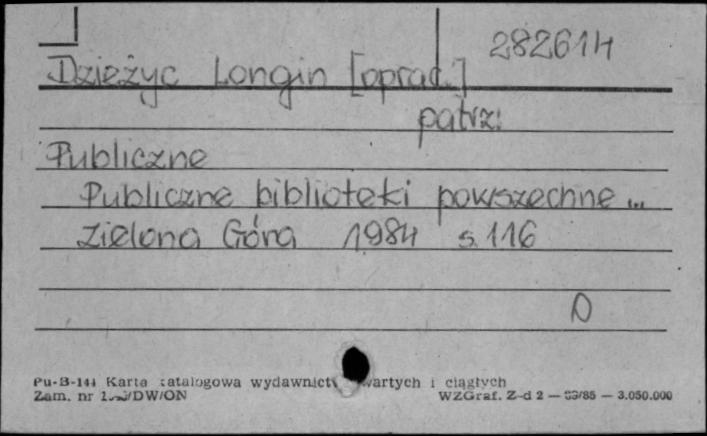 282614
Dzieżyc Longin [oprac.]
patrz:
Publiczne
Publiczne biblioteki powszechne...
Zielona Góra 1984 s. 116
D
Pu-B-144 Karta katalogowa wydawnictw zwartych i ciągłych
Zam. nr /DW/ON WZGraf. Z-d 2 — 83/85 — 3.050.000